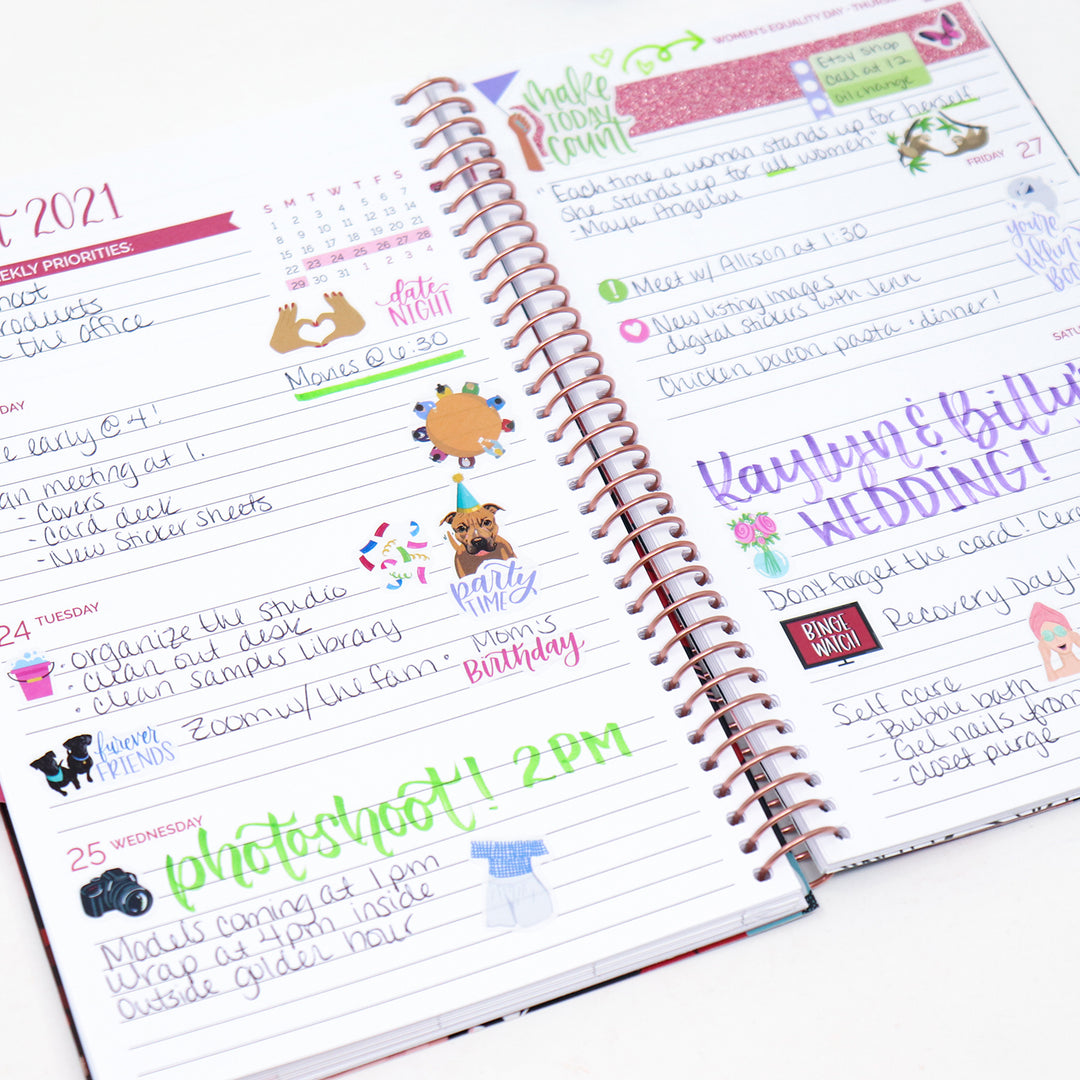 2021
WEEKLY PRIORITIES:
products
the office
S M T W T F S
1 2 3 4 5 6 7
8 9 10 11 12 13 14
15 16 17 18 19 20 21
22 23 24 25 26 27 28
29 30 31 1 2 3 4
date
NIGHT
Movies @ 6:30
early @ 4!
meeting at 1.
- Covers
- Card deck
- New Sticker sheets
party
TIME
24 TUESDAY
· organize the studio
· clean out desk
· clean samples library
Zoom w/ the fam ·
Mom's
Birthday
furever
FRIENDS
25 WEDNESDAY
photoshoot! 2PM
Models coming at 1pm
Wrap at 4pm inside
Outside golder hour
WOMEN'S EQUALITY DAY -
make
TODAY
count
Etsy shop
Call at 12
oil change
"Each time a woman stands up for herself
she stands up for all women"
- Maya Angelou
FRIDAY 27
you're
Meet w/ Allison at 1:30
New listing images
digital stickers with Jenn
Chicken bacon pasta · dinner!
Kaylyn & Billy's
WEDDING!
Don't forget the card!
BINGE
WATCH
Recovery Day!
Self care
- Bubble bath
- Gel nails from
- closet purge